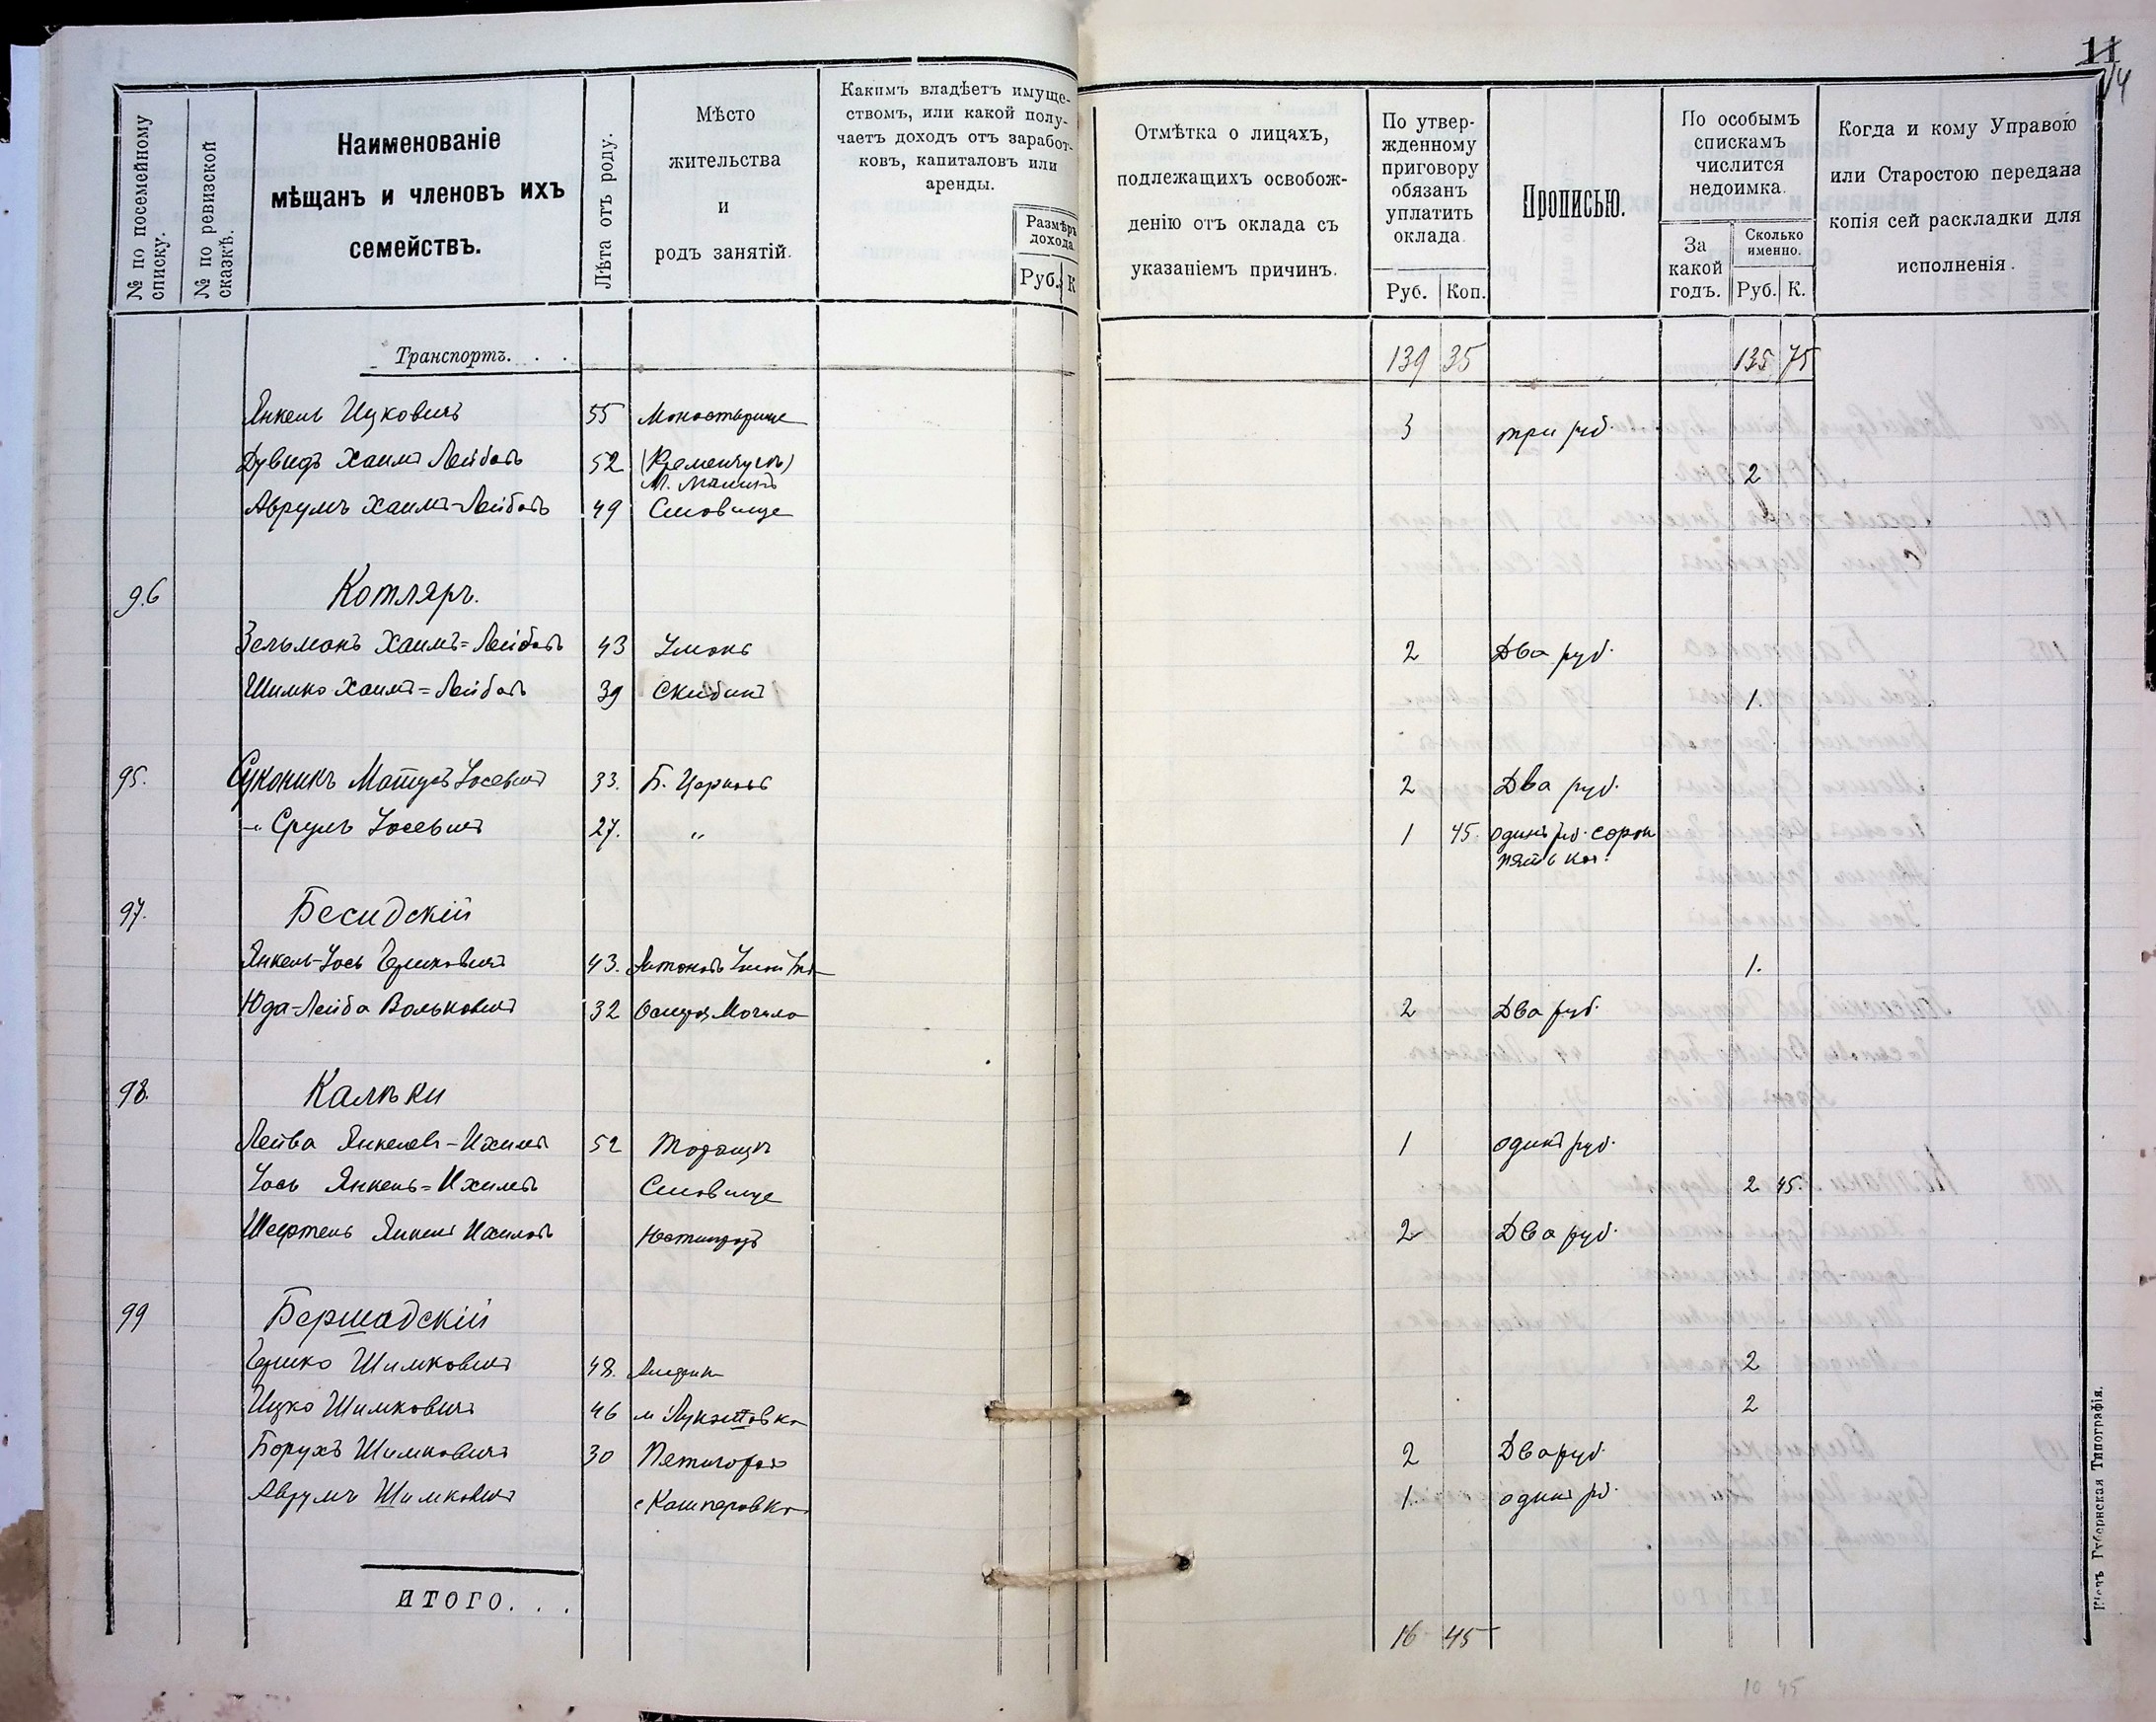 11
14
№ по посемейному списку.
№ по ревизской сказкѣ.
Наименованіе
мѣщанъ и членовъ ихъ
семействъ.
Лѣта отъ роду.
Мѣсто
жительства
и
родъ занятій.
Какимъ владѣетъ имуще-
ствомъ, или какой полу-
чаетъ доходъ отъ заработ-
ковъ, капиталовъ или
аренды.
Размѣръ
дохода.
Руб. К
Отмѣтка о лицахъ,
подлежащихъ освобож-
денію отъ оклада съ
указаніемъ причинъ.
По утвер-
жденному
приговору
обязанъ
уплатить
оклада.
Руб. Коп.
Прописью.
По особымъ
спискамъ
числится
недоимка.
За
какой
годъ.
Сколько
именно.
Руб. К.
Когда и кому Управою
или Старостою передана
копія сей раскладки для
исполненія.
Транспортъ. . . 139 35 135 75
Янкель Ицковичъ 55 Монастырище 3 три руб.
Дувидъ Хаимъ Лейбовъ 52 (Кременчугъ) 2
Аврумъ Хаимъ-Лейбовъ 49 Ставище
96 Котляръ.
Зельманъ Хаимъ=Лейбовъ 43 Умань 2 Два руб.
Шимко Хаимъ=Лейбовъ 39 Скибинъ 1.
95. Суконикъ Мотусъ Іосевичъ 33. Б. Церковь 2 Два руб.
-" Срулъ Іосевичъ 27. " 1 45. одинъ руб. сорок
пять коп.
97. Бесидскій
Янкель-Іось Ершковичъ 43. 1.
Юда-Лейба Вольковичъ 32 Могила 2 Два руб.
98. Калѣки
Лейба Янкелев-Ихилев 52 Торащи 1 один руб.
Іось Янкель=Ихилевъ Ставище 2 45.
Янкель Ихилевъ 2 Два руб.
99 Бершадскій
Ершко Шимковичъ 48. 2
Ицко Шимковичъ 46 м Лукашовка 2
Борухъ Шимковичъ 30 Пятигоры 2 Два руб
Аврумъ Шимковичъ с Кашперовка 1. один рб.
ИТОГО. . .
16 45
10 45
Кіевъ Губернская Типографія.